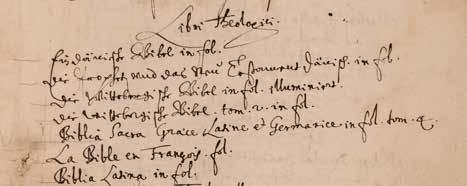 Libri Theologici.
Ein dänische Bibel in fol.
Die Propheten und das Neu Testament Dänisch. in fol.
Die Wittebergische Bibel in fol. illuminiert.
Die Wittebergische Bibel. tom. 2. in fol.
Biblia Sacra Græce Latine et Germanice in fol. tom. 4.
La Bible en François. fol.
Biblia Latina in fol.